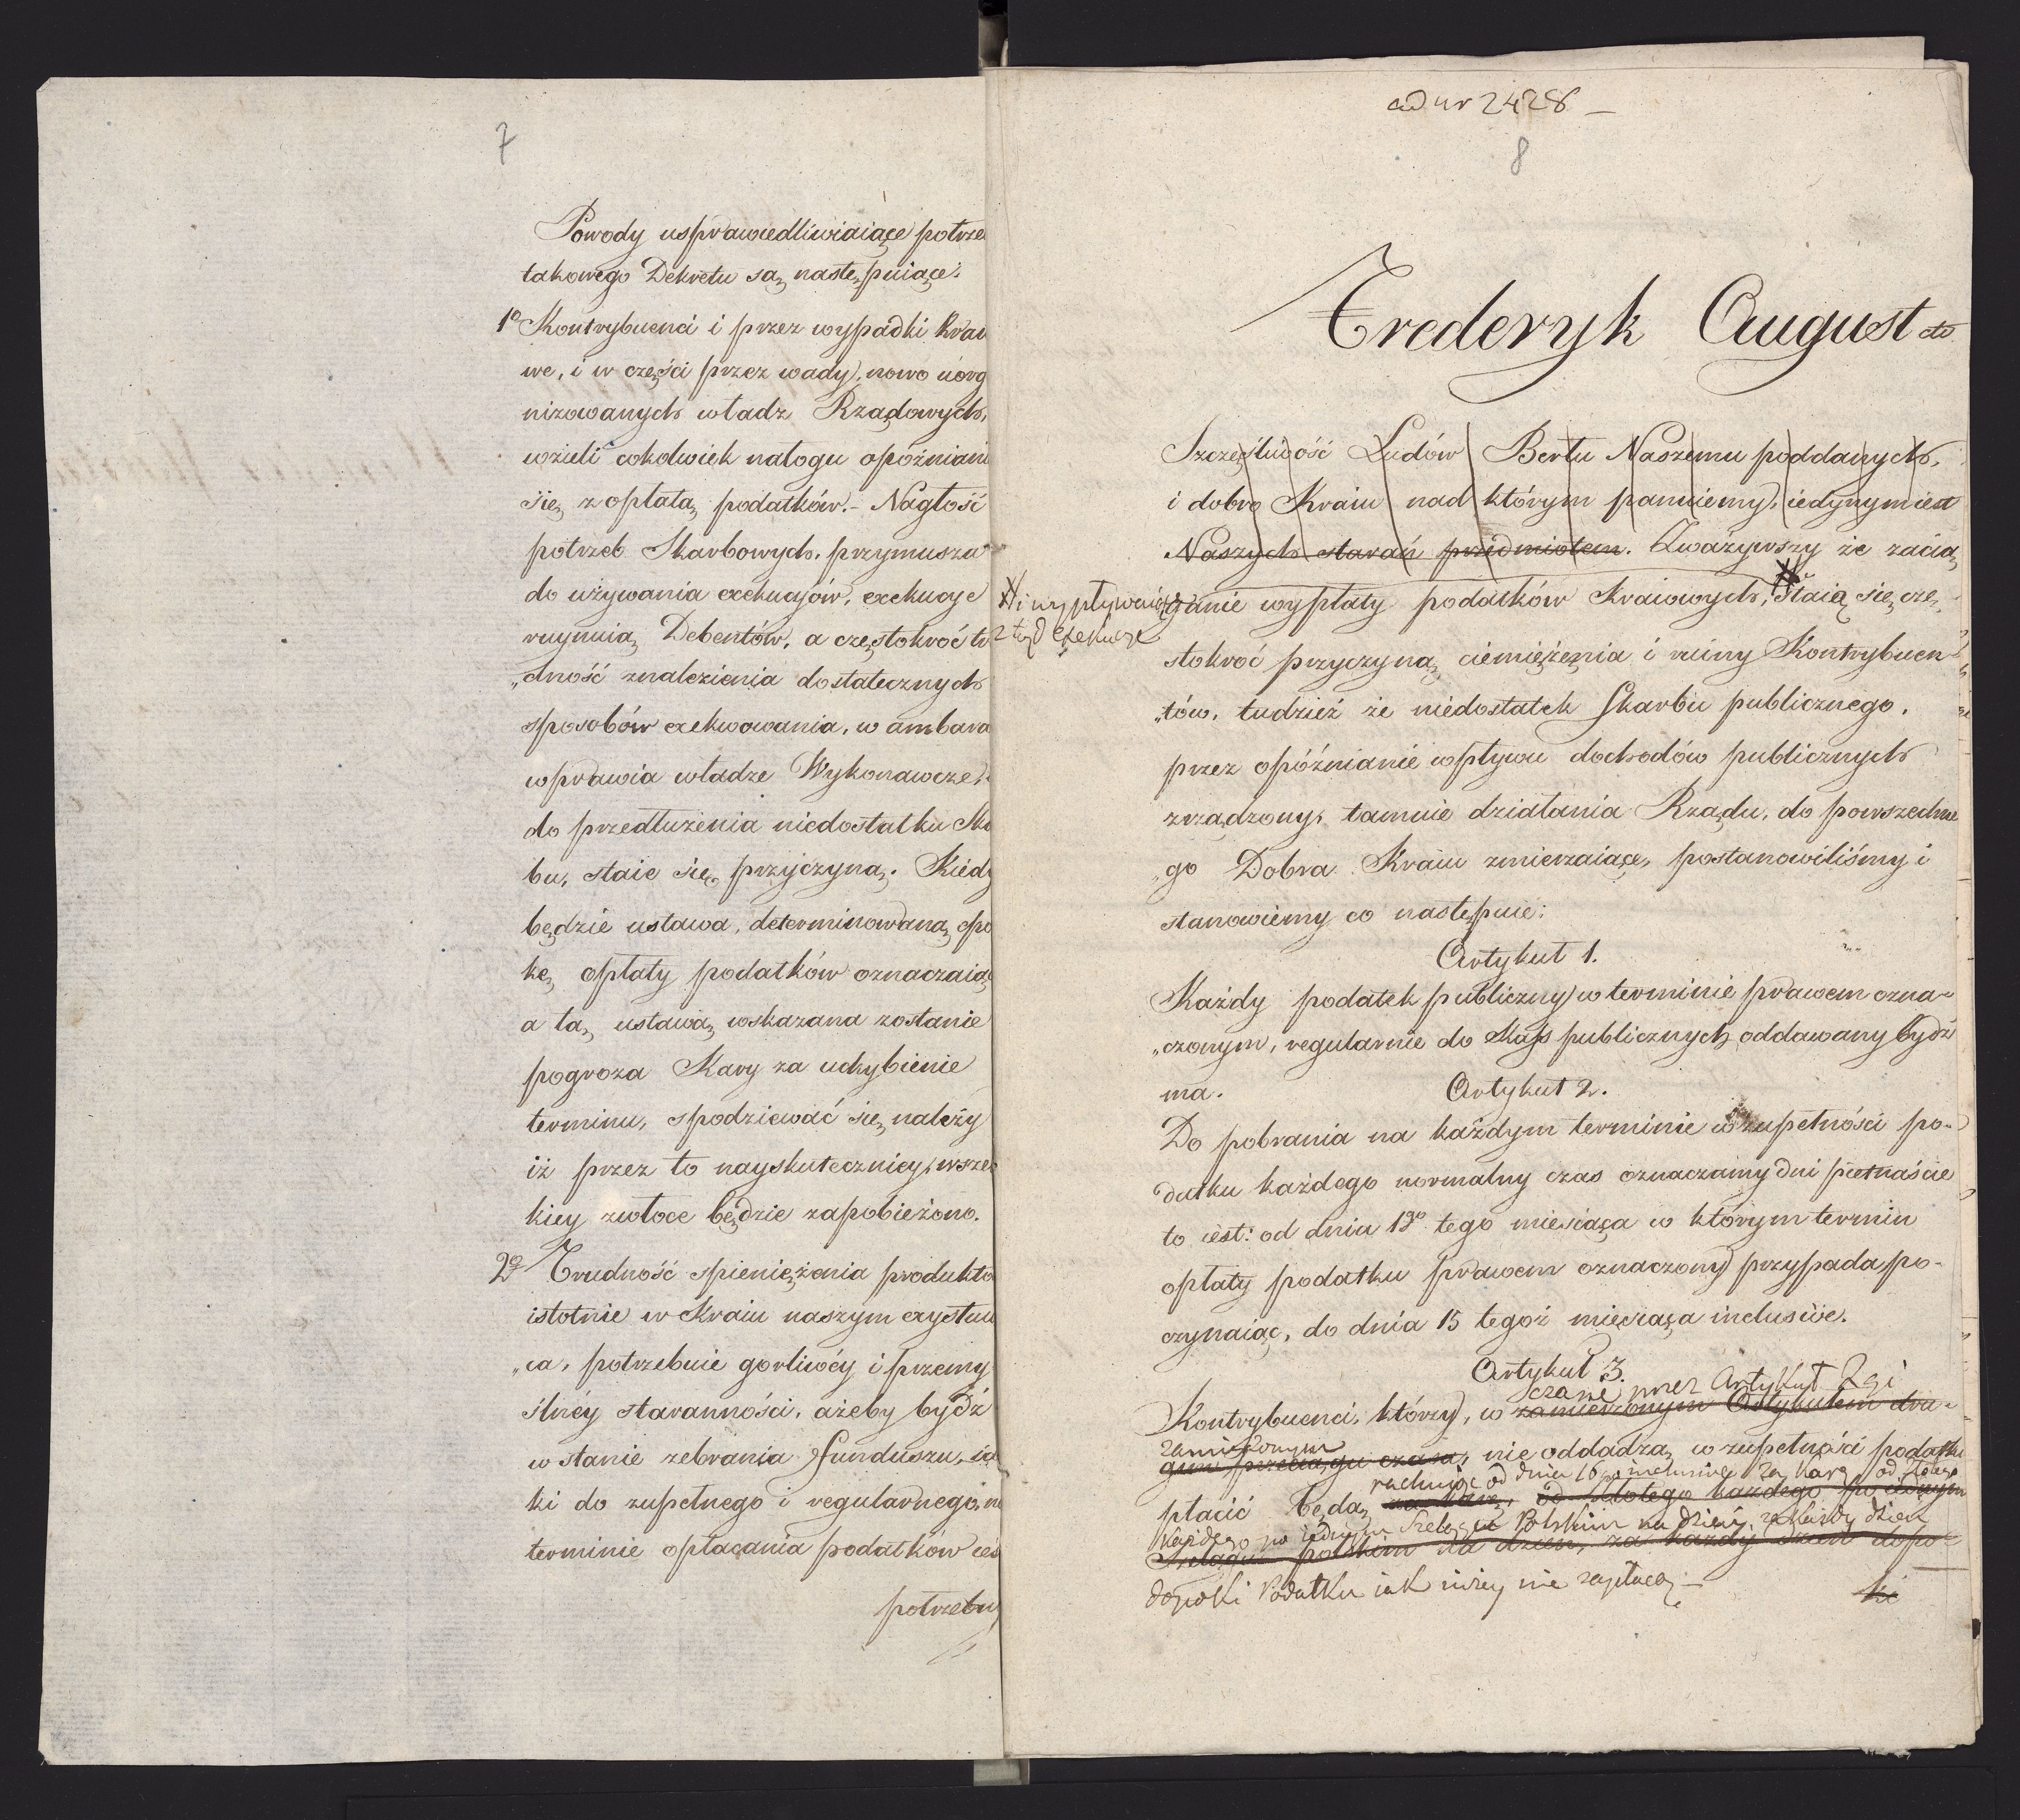 7
Powody usprawiedliwiaiące potrze
takowego Dekretu są następuiące:
1o Kontrybuenci i przez wypadki kraio
we, i w części przez wady, nowo uorg
nizowanych władz Rządowych,
wzieli cokolwiek nałogu opoźniani
się z opłatą podatków. - Nagłość
potrzeb Skarbowych, przymusza
do używania exekucyów, exekucye
ruynuią Debentów, a częstokroć tr
„dność znalezienia dostatecznych
sposobów exekwowania, w ambara
wprawia władze Wykonawcze,
do przedłużenia niedostatku Ska
bu, staie się przyczyną. Kiedy
będzie ustawa, determinowaną epo
kę opłaty podatków oznaczaiąc
a tą ustawą wskazana zostanie
pogroza Kary za uchybienie
terminu, spodziewać się należy
iż przez to nayskuteczniey wszel
kiey zwłoce będzie zapobieżono.
2o Trudność spieniężenia produktó
istotnie w Kraiu naszym exystuią
„ca, potrzebuie gorliwéy i przemy
ślnéy staranności, ażeby bydź
w stanie zebrania funduszu, ia
ki do zupełnego i regularnego, w
terminie opłacania podatków ies
potrzebny
ad nr 2428 -
8
Frederyk August etc
Szczęśliwość Ludów Berłu Naszemu poddanych,
i dobro Kraiu nad którym panuiemy, iedynym iest
Naszych starań przedmiotem. Zważywszy że zacią
ganie wypłaty podatków Kraiowych, staią się czę
# i wypływaiące
z tąd exekucye
stokroć przyczyną ciemiężenia i ruiny Kontrybuen
„tów, tudzież że niedostatek Skarbu publicznego,
przez opóźnianie wpływu dochodów publicznych
zrządzony, tamuie działania Rządu, do powszechne
„go Dobra Kraiu zmierzaiące, postanowiliśmy i
stanowiemy co następuie:
Artykuł 1.
Każdy podatek publiczny w terminie prawem ozna-
„czonym, regularnie do Kass publicznych oddawany bydź
ma.
Artykuł 2.
Do pobrania na każdym terminie w zupełności po-
datku każdego normalny czas oznaczamy dni piętnaście
to iest: od dnia 1go tego miesiąca w którym termin
opłaty podatku prawem oznaczony przypada, po-
czynaiąc, do dnia 15 tegoż miesiąca inclusive.
Artykuł 3.
czasie przez Artykuł 2gi
Kontrybuenci, którzy, w zamierzonym Artykułem dru-
zamierzonym
gim przeciągu czasu, nie oddadzą w zupełności podatku
rachuiąc od dnia 16 inclusive za karę od złotego
płacić będą za karę, od złotego każdego po iednym
każdego po iednym Szelągu Polskim na dzień, za każdy dzień
Szelągu polskim na dzień, za każdy dzień dopo-
dopoki Podatku iak niżey nie zapłacą. -
ki